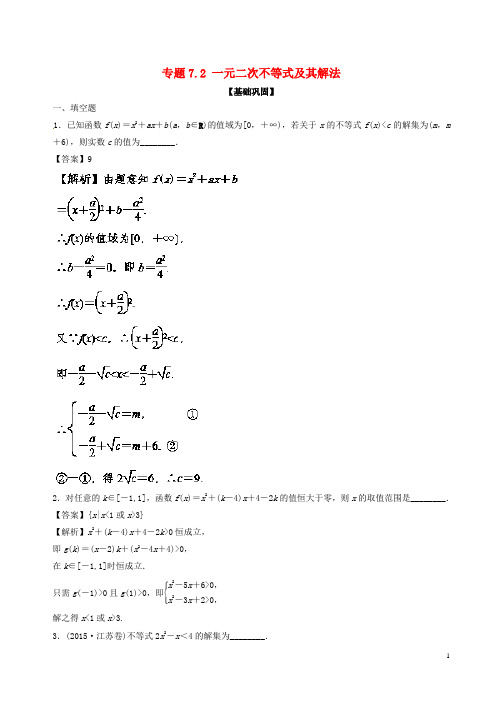 专题7.2 一元二次不等式及其解法
【基础巩固】
一、填空题
1．已知函数f(x)＝x²＋ax＋b(a，b∈R)的值域为[0，＋∞)，若关于x的不等式f(x)<c的解集为(m，m
＋6)，则实数c的值为________．
【答案】9
【解析】由题意知 f(x)＝x²＋ax＋b
＝(x＋a/2)²＋b－a²/4.
∴f(x)的值域为[0，＋∞)，
∴b－a²/4＝0，即b＝a²/4.
∴f(x)＝(x＋a/2)².
又∵f(x)<c，∴(x＋a/2)²<c，
即－a/2－√c<x<－a/2＋√c.
∴{－a/2－√c＝m， ①
－a/2＋√c＝m＋6. ②
②－①，得2√c＝6，∴c＝9.
2．对任意的k∈[－1,1]，函数f(x)＝x²＋(k－4)x＋4－2k的值恒大于零，则x的取值范围是________．
【答案】{x|x<1或x>3}
【解析】x²＋(k－4)x＋4－2k>0恒成立，
即g(k)＝(x－2)k＋(x²－4x＋4)>0，
在k∈[－1,1]时恒成立.
只需g(－1)>0且g(1)>0，即{x²－5x＋6>0，
x²－3x＋2>0，
解之得x<1或x>3.
3．(2015·江苏卷)不等式2x²－x＜4的解集为________．
1